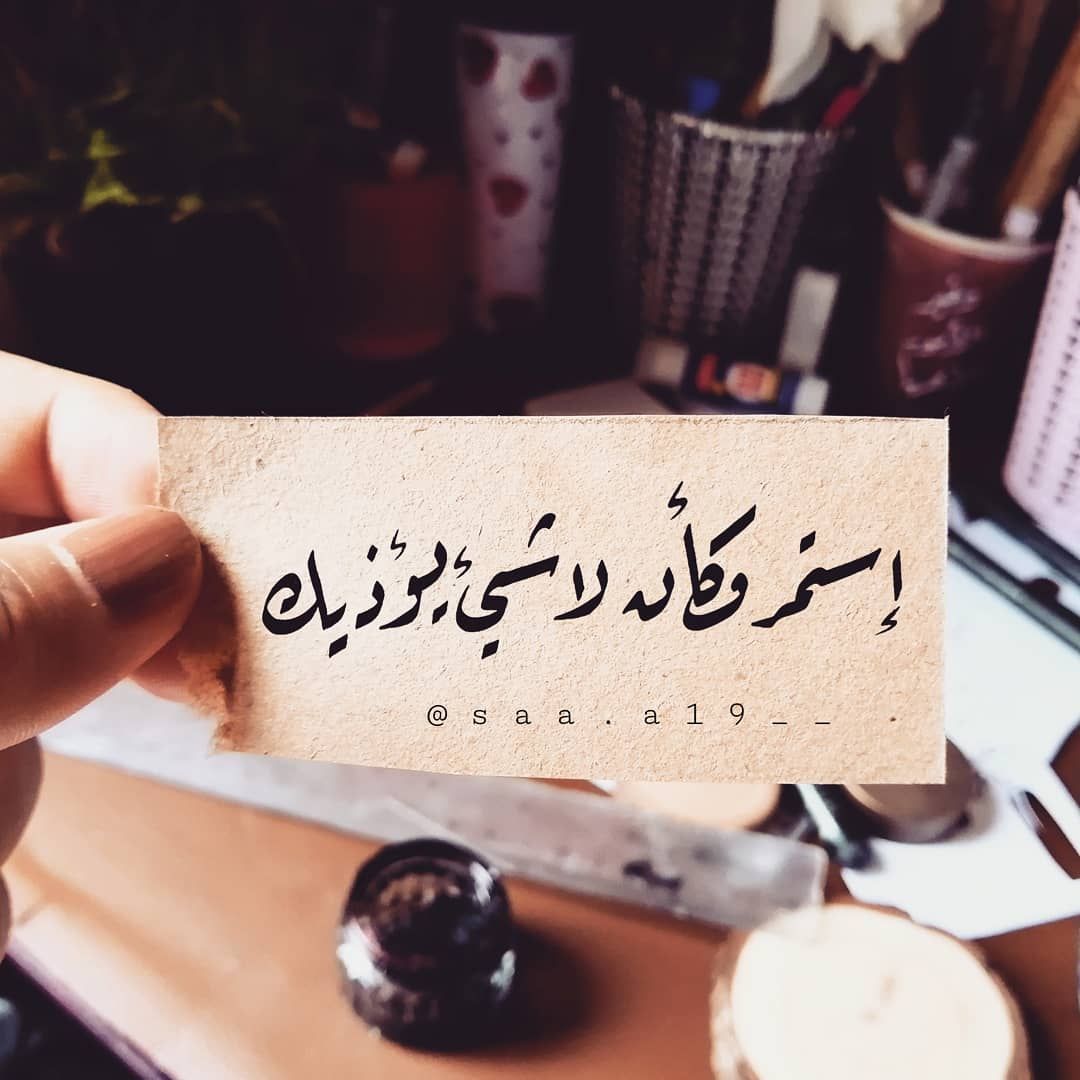 إستمر وكأن لا شيء يؤذيك
@saa.a19__